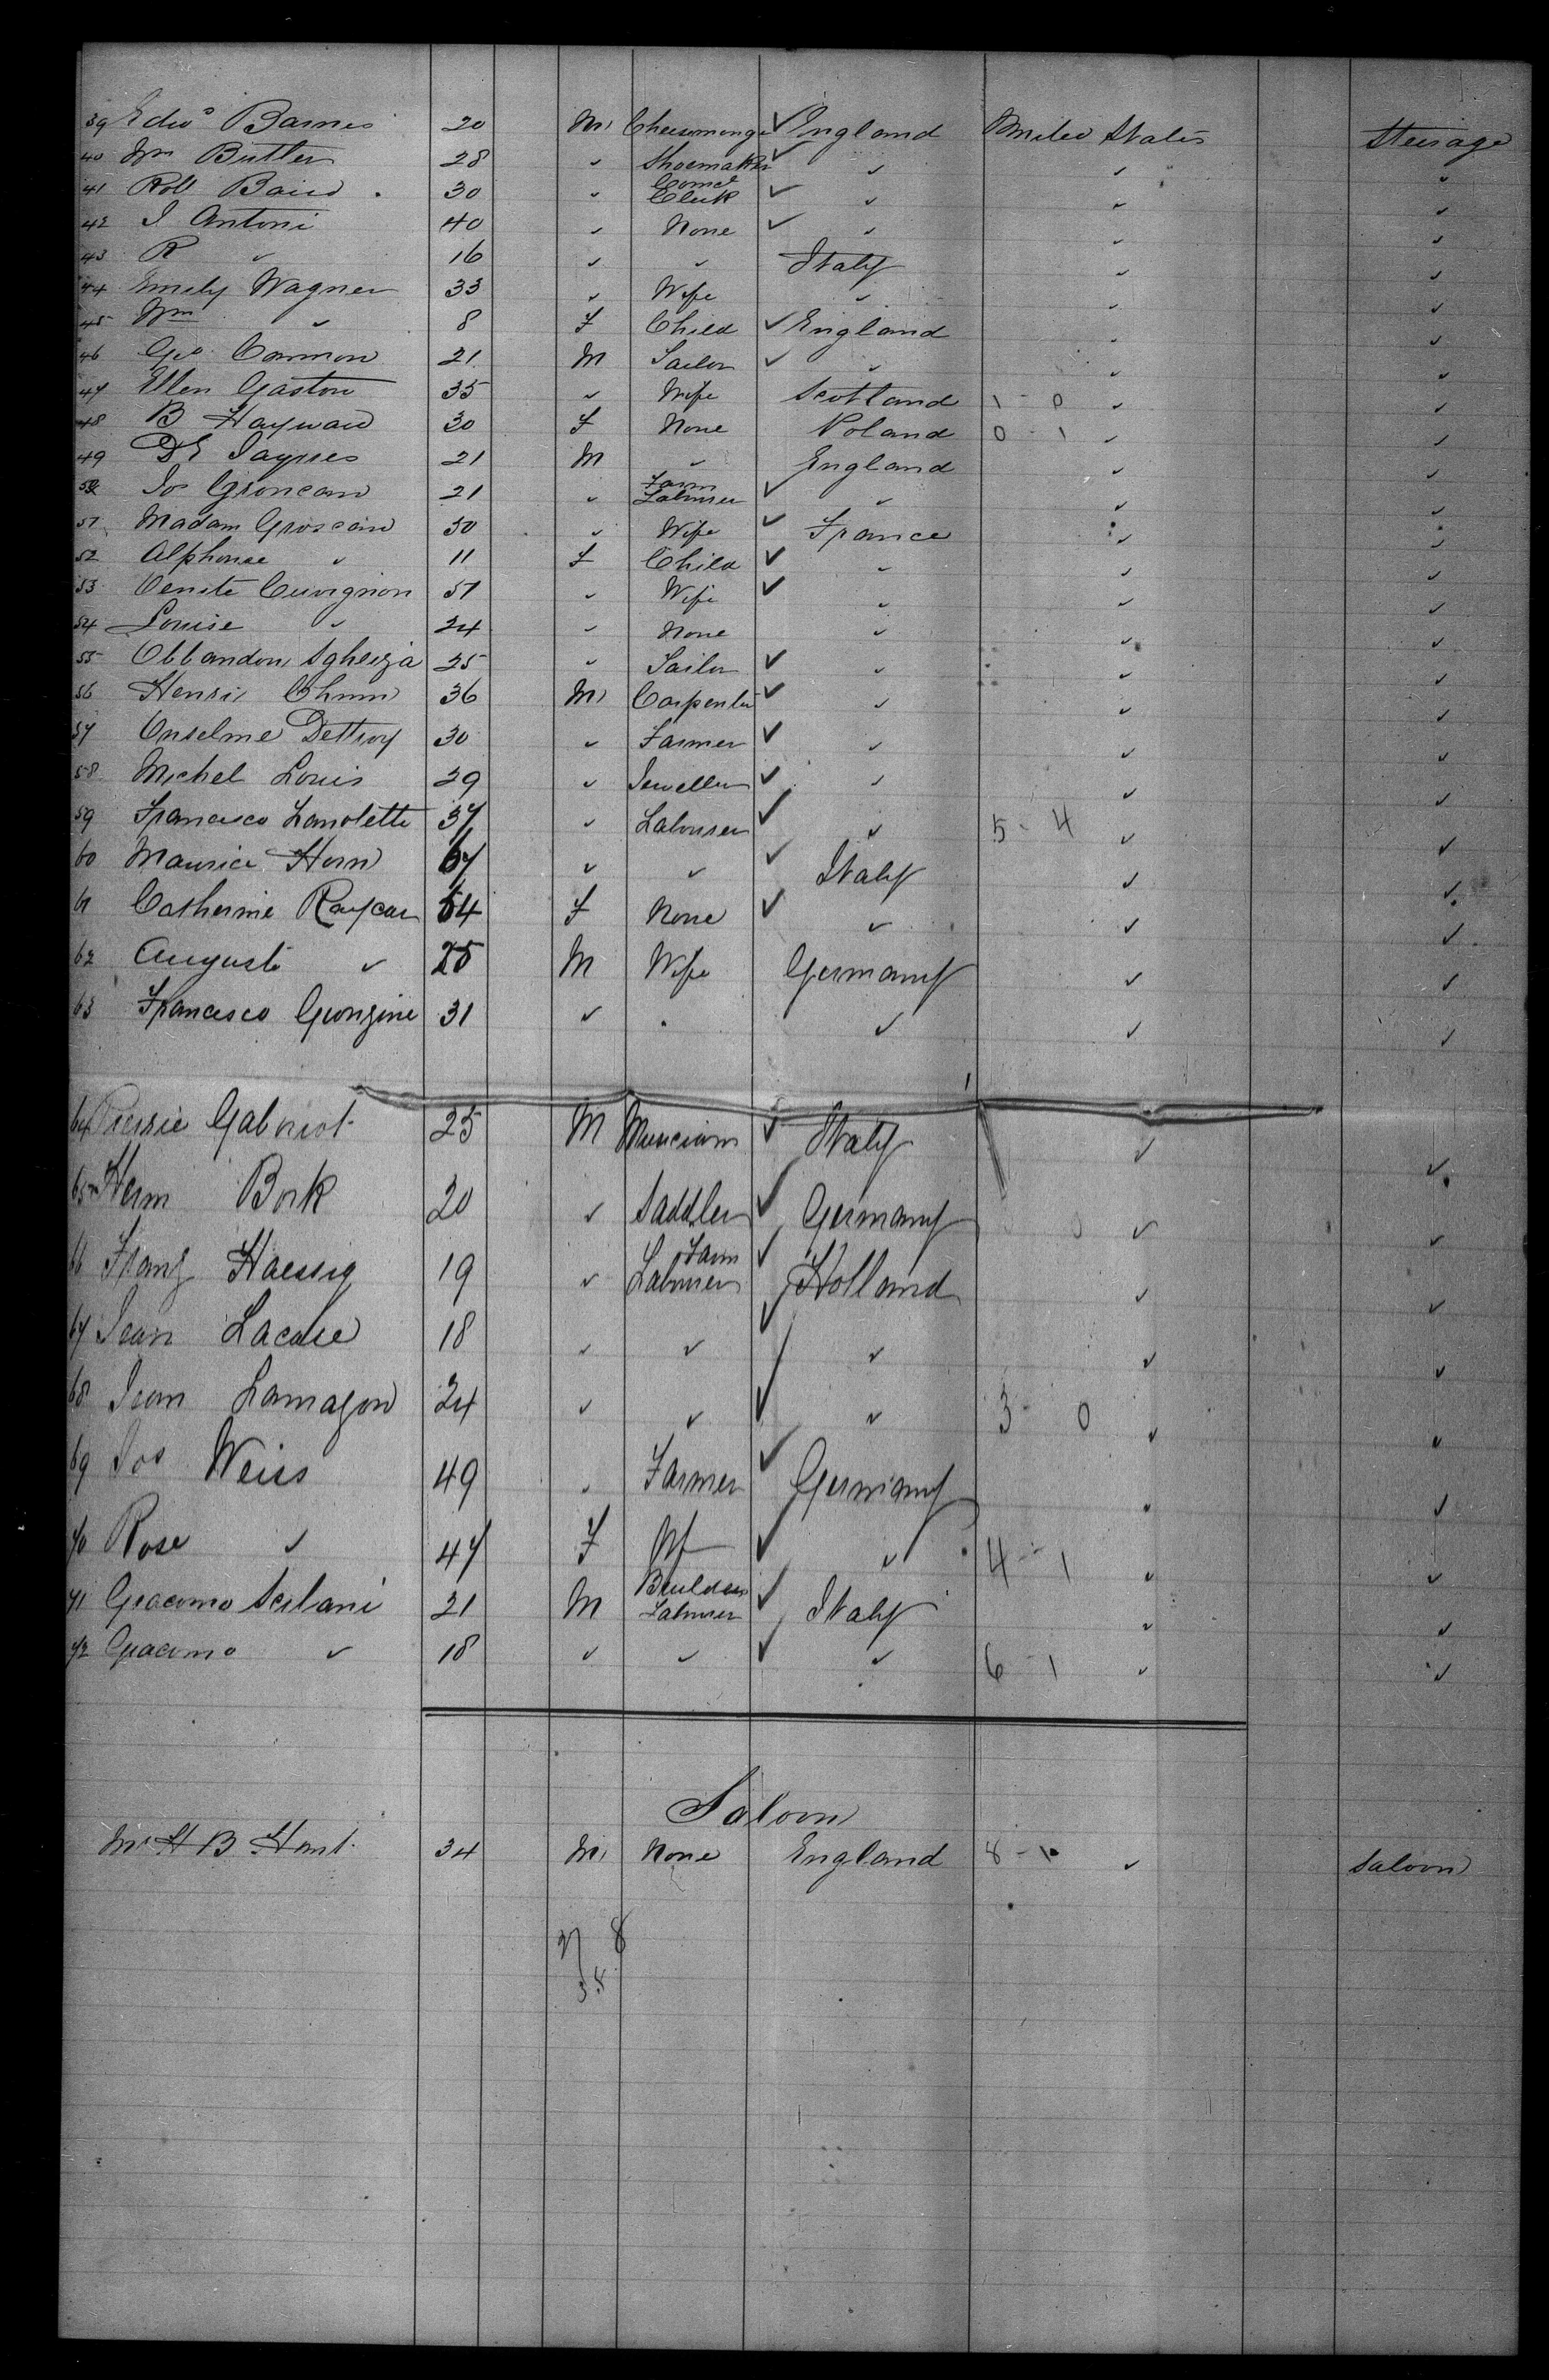 39 Edwd Barnes 20 M Cheesemonger ✓ England United States Steerage
40 Wm Butler 28 " Shoemaker ✓ " " "
41 Robt Baird 30 " Comcl Clerk ✓ " " "
42 I Antoni 40 " None ✓ " " "
43 R " 16 " " Italy " "
44 Emily Wagner 33 " Wife " " "
45 Wm " 8 F Child ✓ England " "
46 Geo Cannon 21 M Sailor ✓ " " "
47 Ellen Gaston 35 " Wife Scotland 1 - 0 " "
48 B Hayward 30 F None Poland 0 - 1 " "
49 21 M " England " "
50 Jos 21 " Farm Labourer ✓ " " "
51 Madam 30 " Wife ✓ France " "
52 Alphonse " 11 F Child ✓ " " "
53 Cuvignion 51 " Wife ✓ " " "
54 Louise " 24 " None " " "
55 25 " Sailor ✓ " " "
56 Henri 36 M Carpenter ✓ " " "
57 Onselme Dettroy 30 " Farmer ✓ " " "
58 Michel Louis 29 " Jeweller ✓ " " "
59 Francesco Lanolette 37 " Labourer ✓ " 5 - 4 " "
60 Maurice Horn 67 " " ✓ Italy " "
61 Catherine Raycar 54 F None ✓ " " "
62 Auguste " 25 M Wife Germany " "
63 Francesco Giongine 31 " " " "
64 Pierrie Gabriot 25 M Musician ✓ Italy " "
65 Herm Bork 20 " Saddler ✓ Germany " "
66 Franz Haessig 19 " Farm Labourer ✓ Holland " "
67 Jean Lacasse 18 " " ✓ " " "
68 Jean Lamazon 24 " " ✓ " 3 - 0 " "
69 Jos Weiss 49 " Farmer ✓ Germany " "
70 Rose " 47 F Wf ✓ " 4 - 1 " "
71 Giacomo Scilani 21 M Builders Labourer ✓ Italy " "
72 Giacomo " 18 " " ✓ " 6 - 1 " "
Saloon
Mr H B Hart 34 M None England 8 - 1 " Saloon
27 8
35